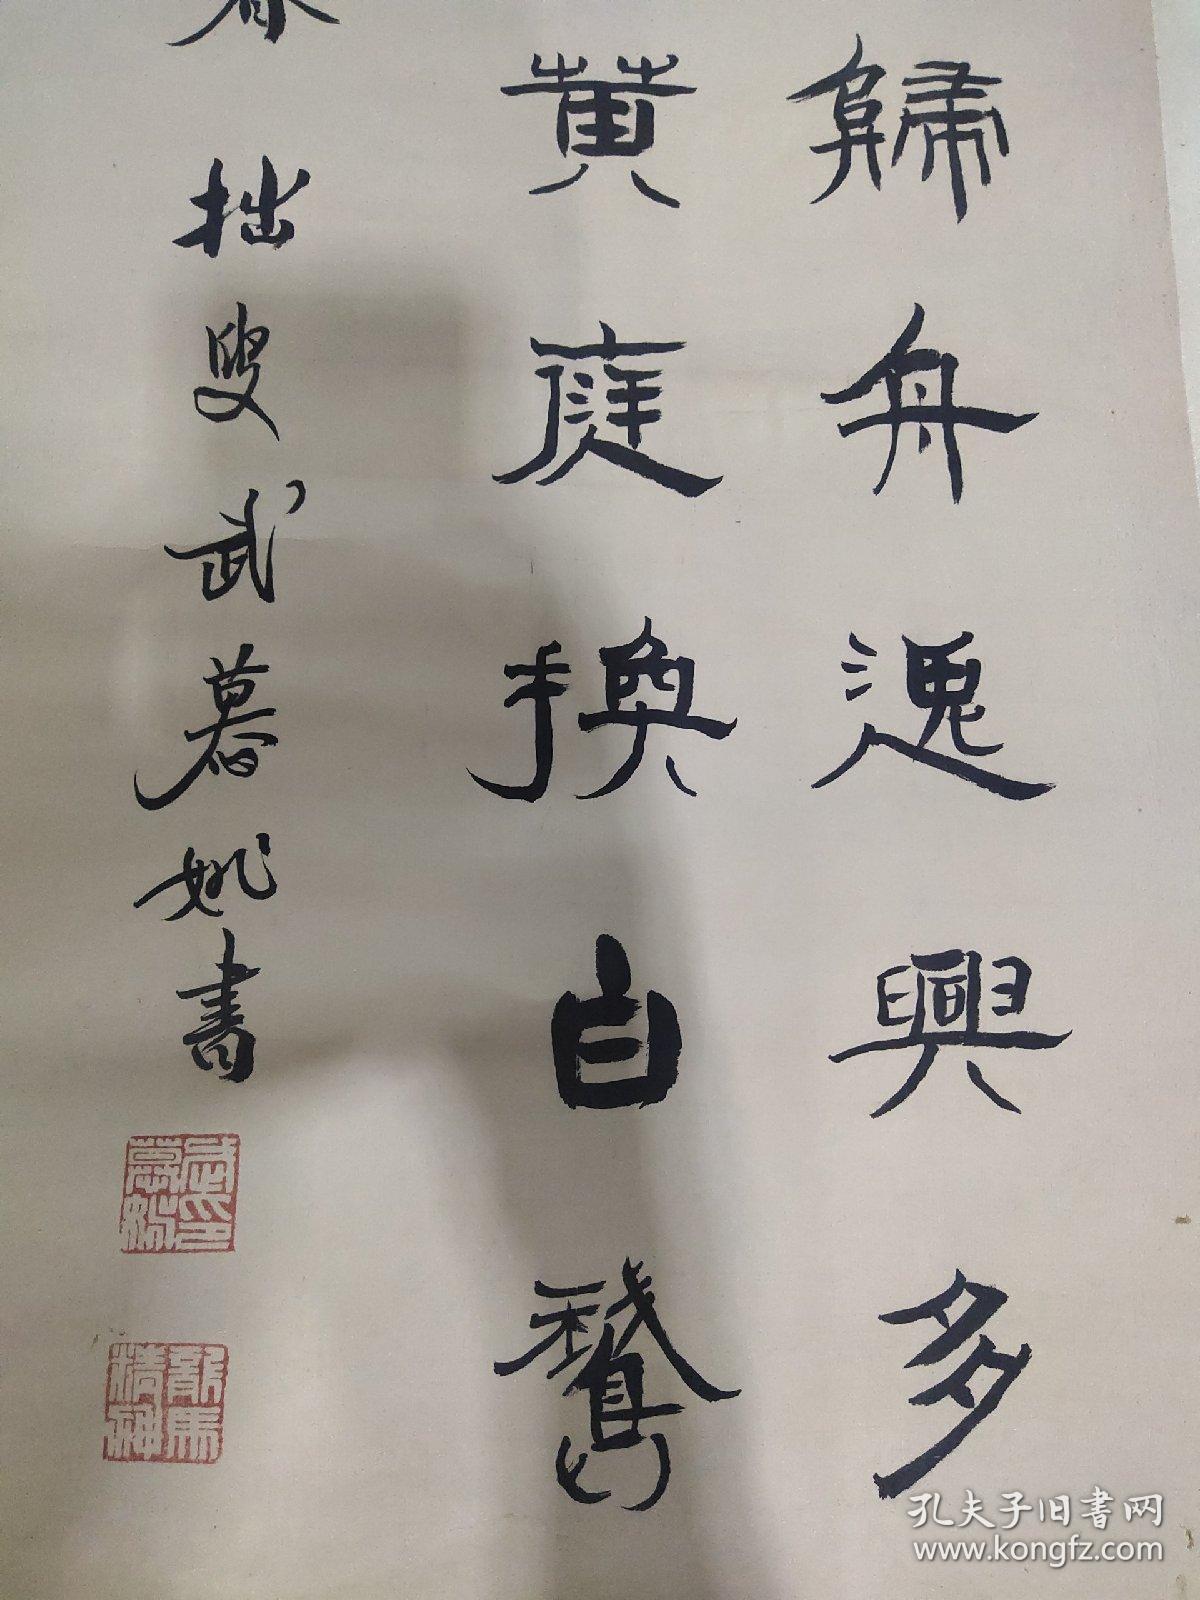 歸舟逸興多
黄庭換白鵝
春 拙叟武慕姚書
武慕姚印
龍馬精神
孔夫子旧书网
www.kongfz.com